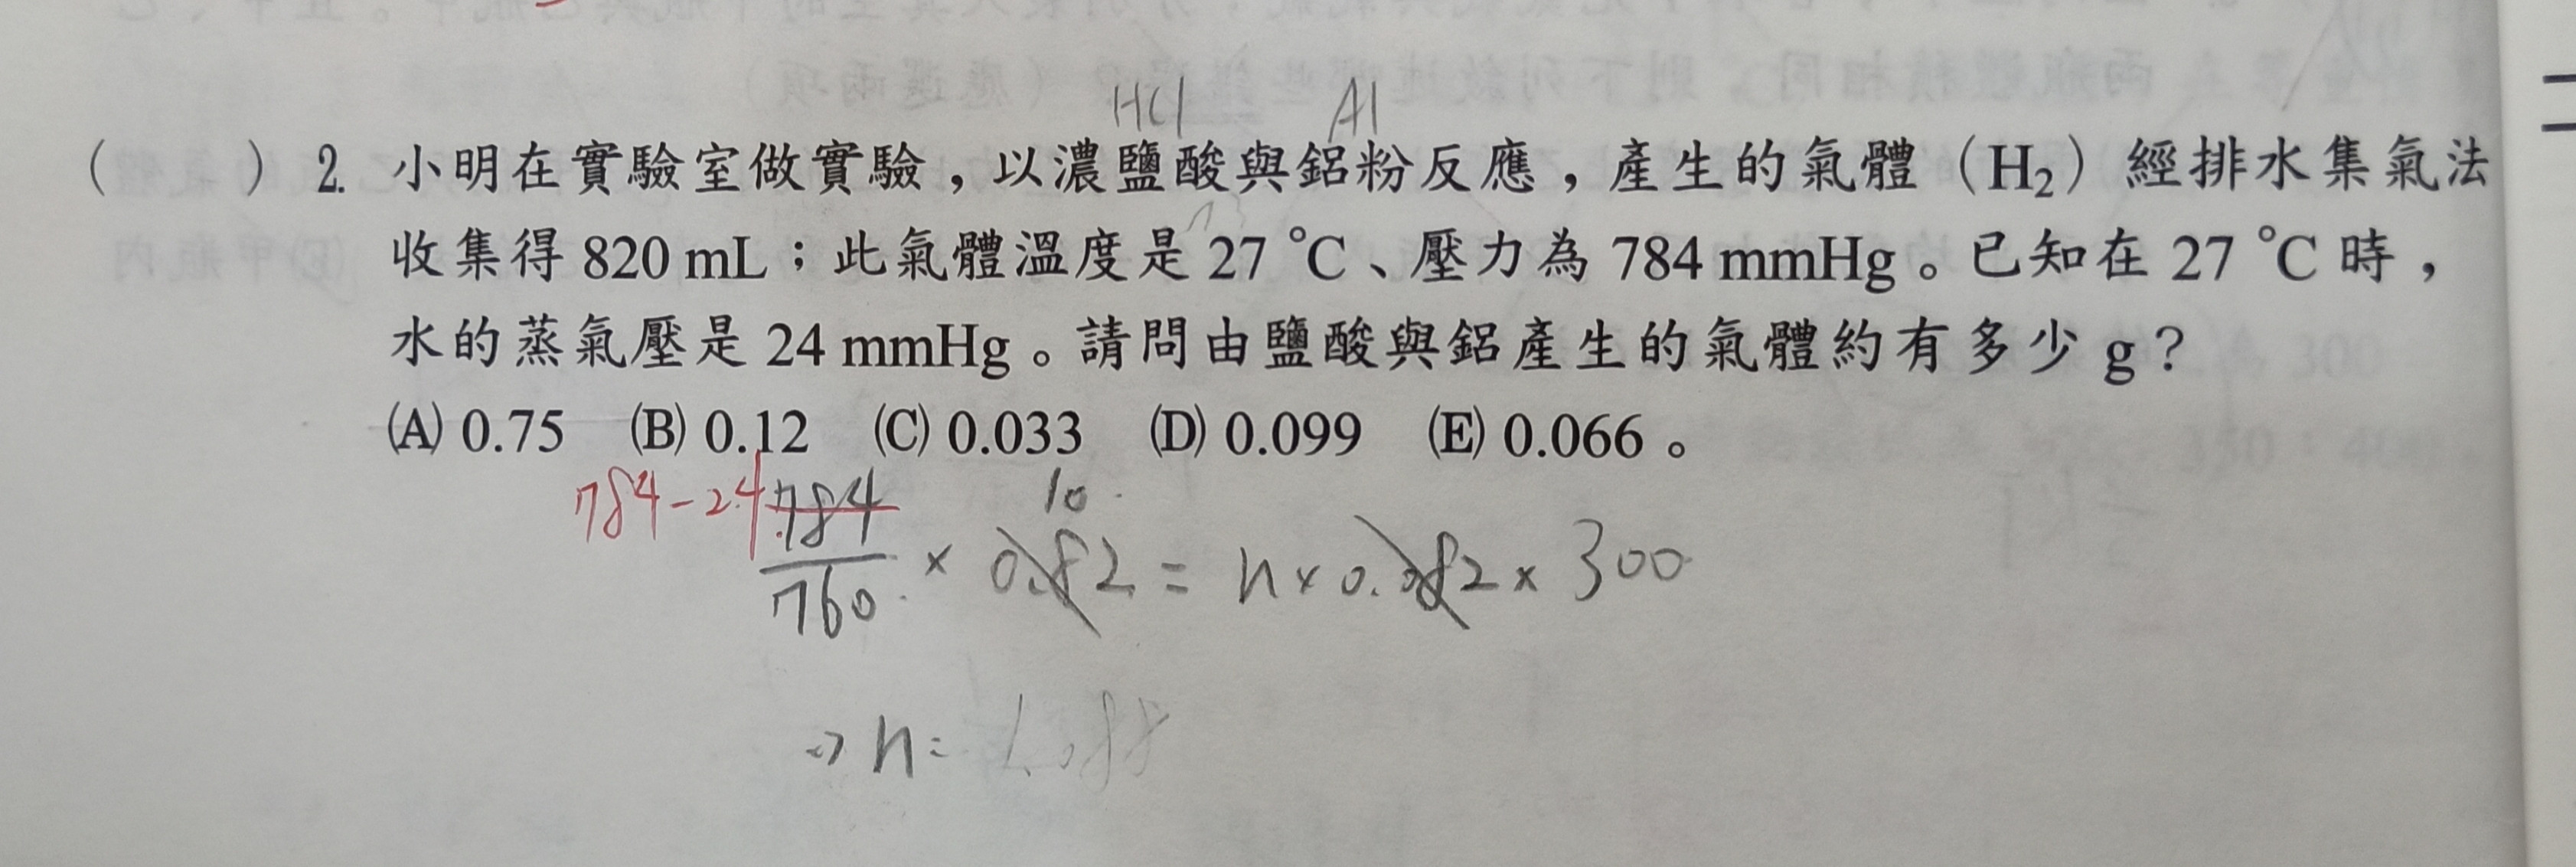 HCl Al
( ) 2. 小明在實驗室做實驗，以濃鹽酸與鋁粉反應，產生的氣體（H₂）經排水集氣法
收集得 820 mL；此氣體溫度是 27 °C、壓力為 784 mmHg。已知在 27 °C 時，
水的蒸氣壓是 24 mmHg。請問由鹽酸與鋁產生的氣體約有多少 g？
(A) 0.75 (B) 0.12 (C) 0.033 (D) 0.099 (E) 0.066。
784-24 784 10
760 × 0.82 = n × 0.082 × 300
⇒ n =